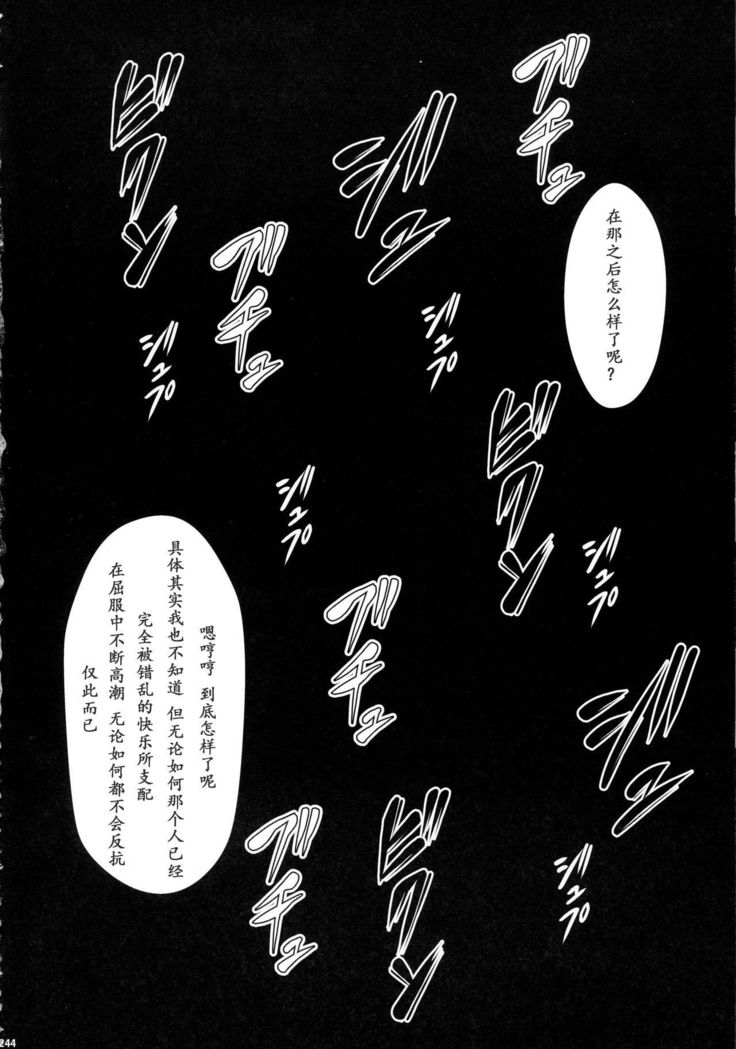 ゲチュ
ジュ
ビクン
在那之后怎么样了呢?
ゲチュ
ジュプ
ジュプ
ビクン
ジュプ
ジュプ
嗯哼哼 到底怎样了呢
具体其实我也不知道 但无论如何那个人已经
完全被错乱的快乐所支配
在屈服中不断高潮 无论如何都不会反抗
仅此而已
ゲチュ
ジュ
ゲチュ
ビクン
ジュプ
244